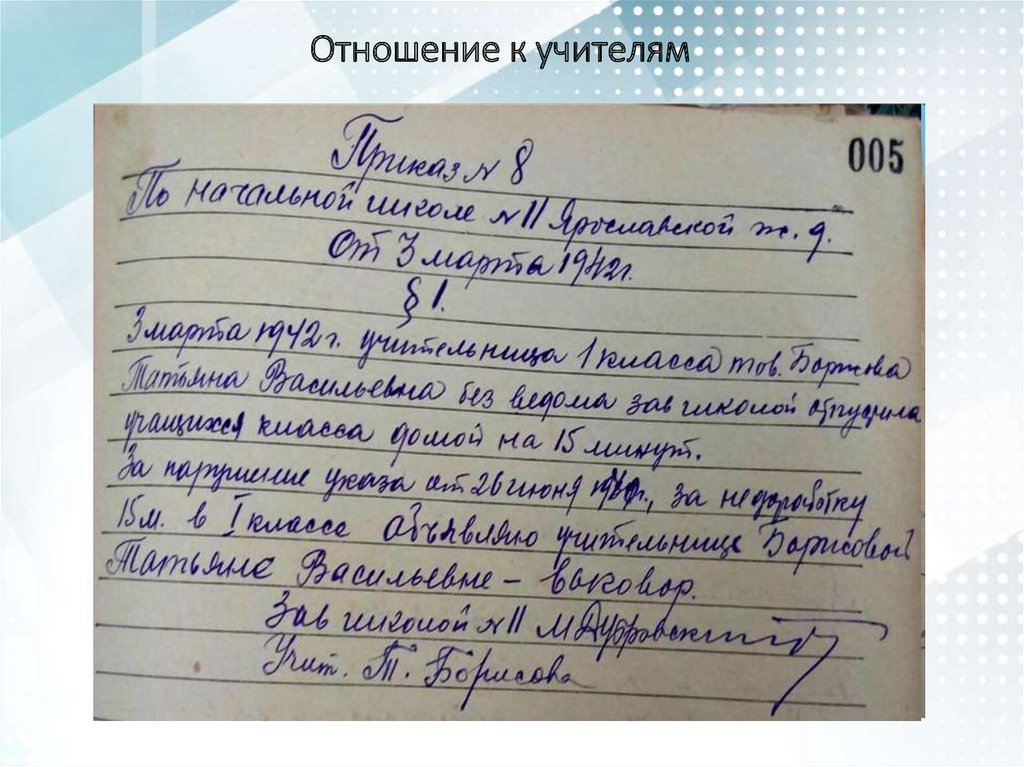 Отношение к учителям
005
Приказ № 8
По начальной школе № 11 Ярославской ж. д.
От 3 марта 1942 г.
§ 1.
3 марта 1942 г. учительница 1 класса тов. Борисова
Татьяна Васильевна без ведома зав школой отпустила
учащихся класса домой на 15 минут.
За нарушение указа от 26 июня 1940г., за недоработку
15 м. в I классе объявляю учительнице Борисовой
Татьяне Васильевне – выговор.
Зав школой № 11 М Дубровский
Учит. Т. Борисова